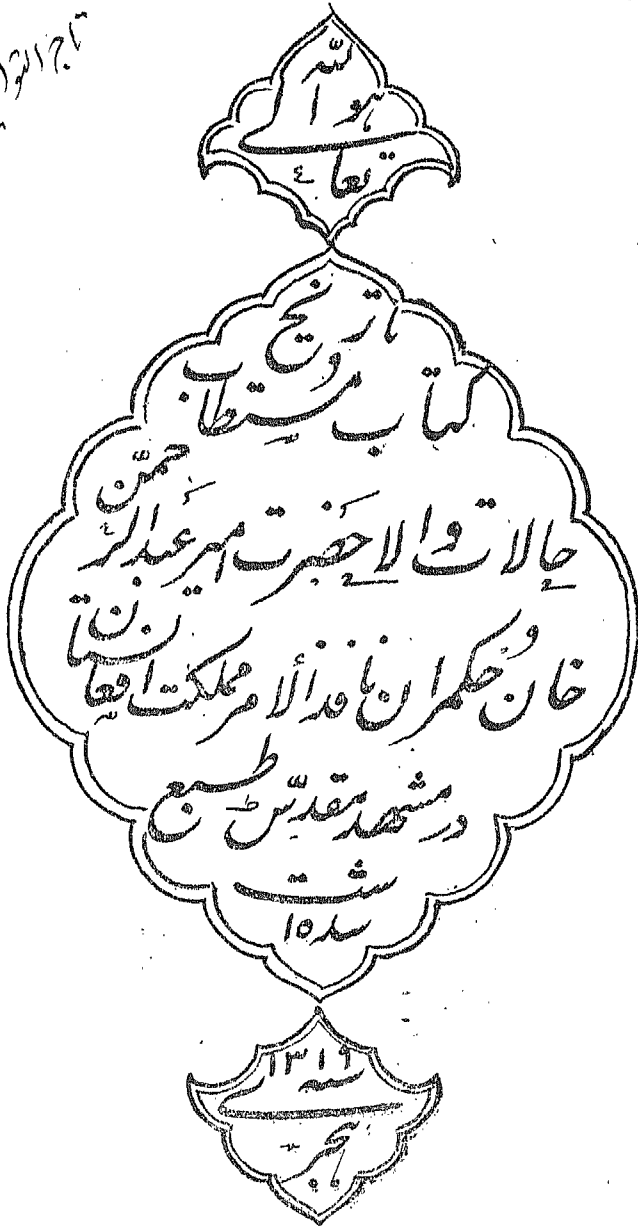 تاج التوا
هو الله
تعالی
تاریخ
کتاب مستطاب و
حالات والاحضرت امیر عبدالرحمن
خان و حکمران نافذ الامر مملکت افغانستان
در مشهد مقدس طبع
شد
۱۳۱۹
سنه
هجری